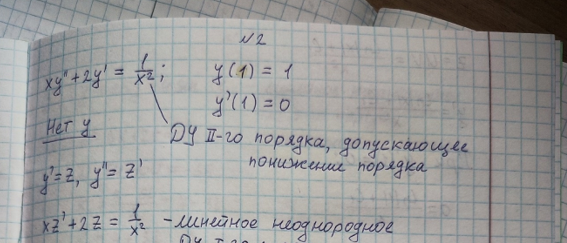 №2
xy'' + 2y' = 1/x²; y(1) = 1
y'(1) = 0
Нет y
ДУ II-го порядка, допускающее
понижение порядка
y' = z, y'' = z'
xz' + 2z = 1/x² - линейное неоднородное